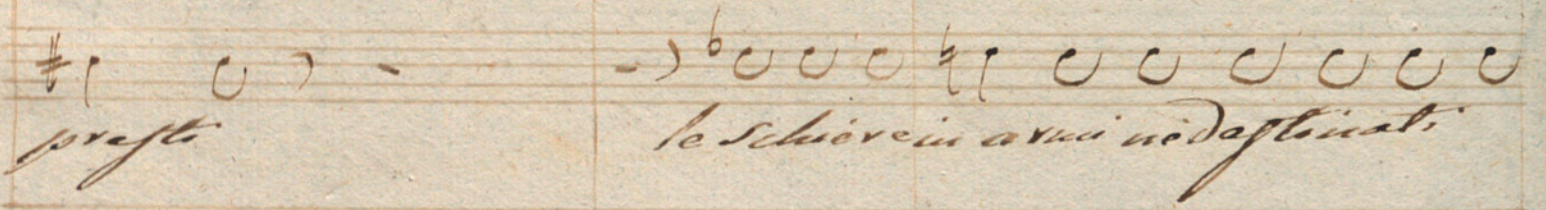 presti le schiere in armi ne destinati